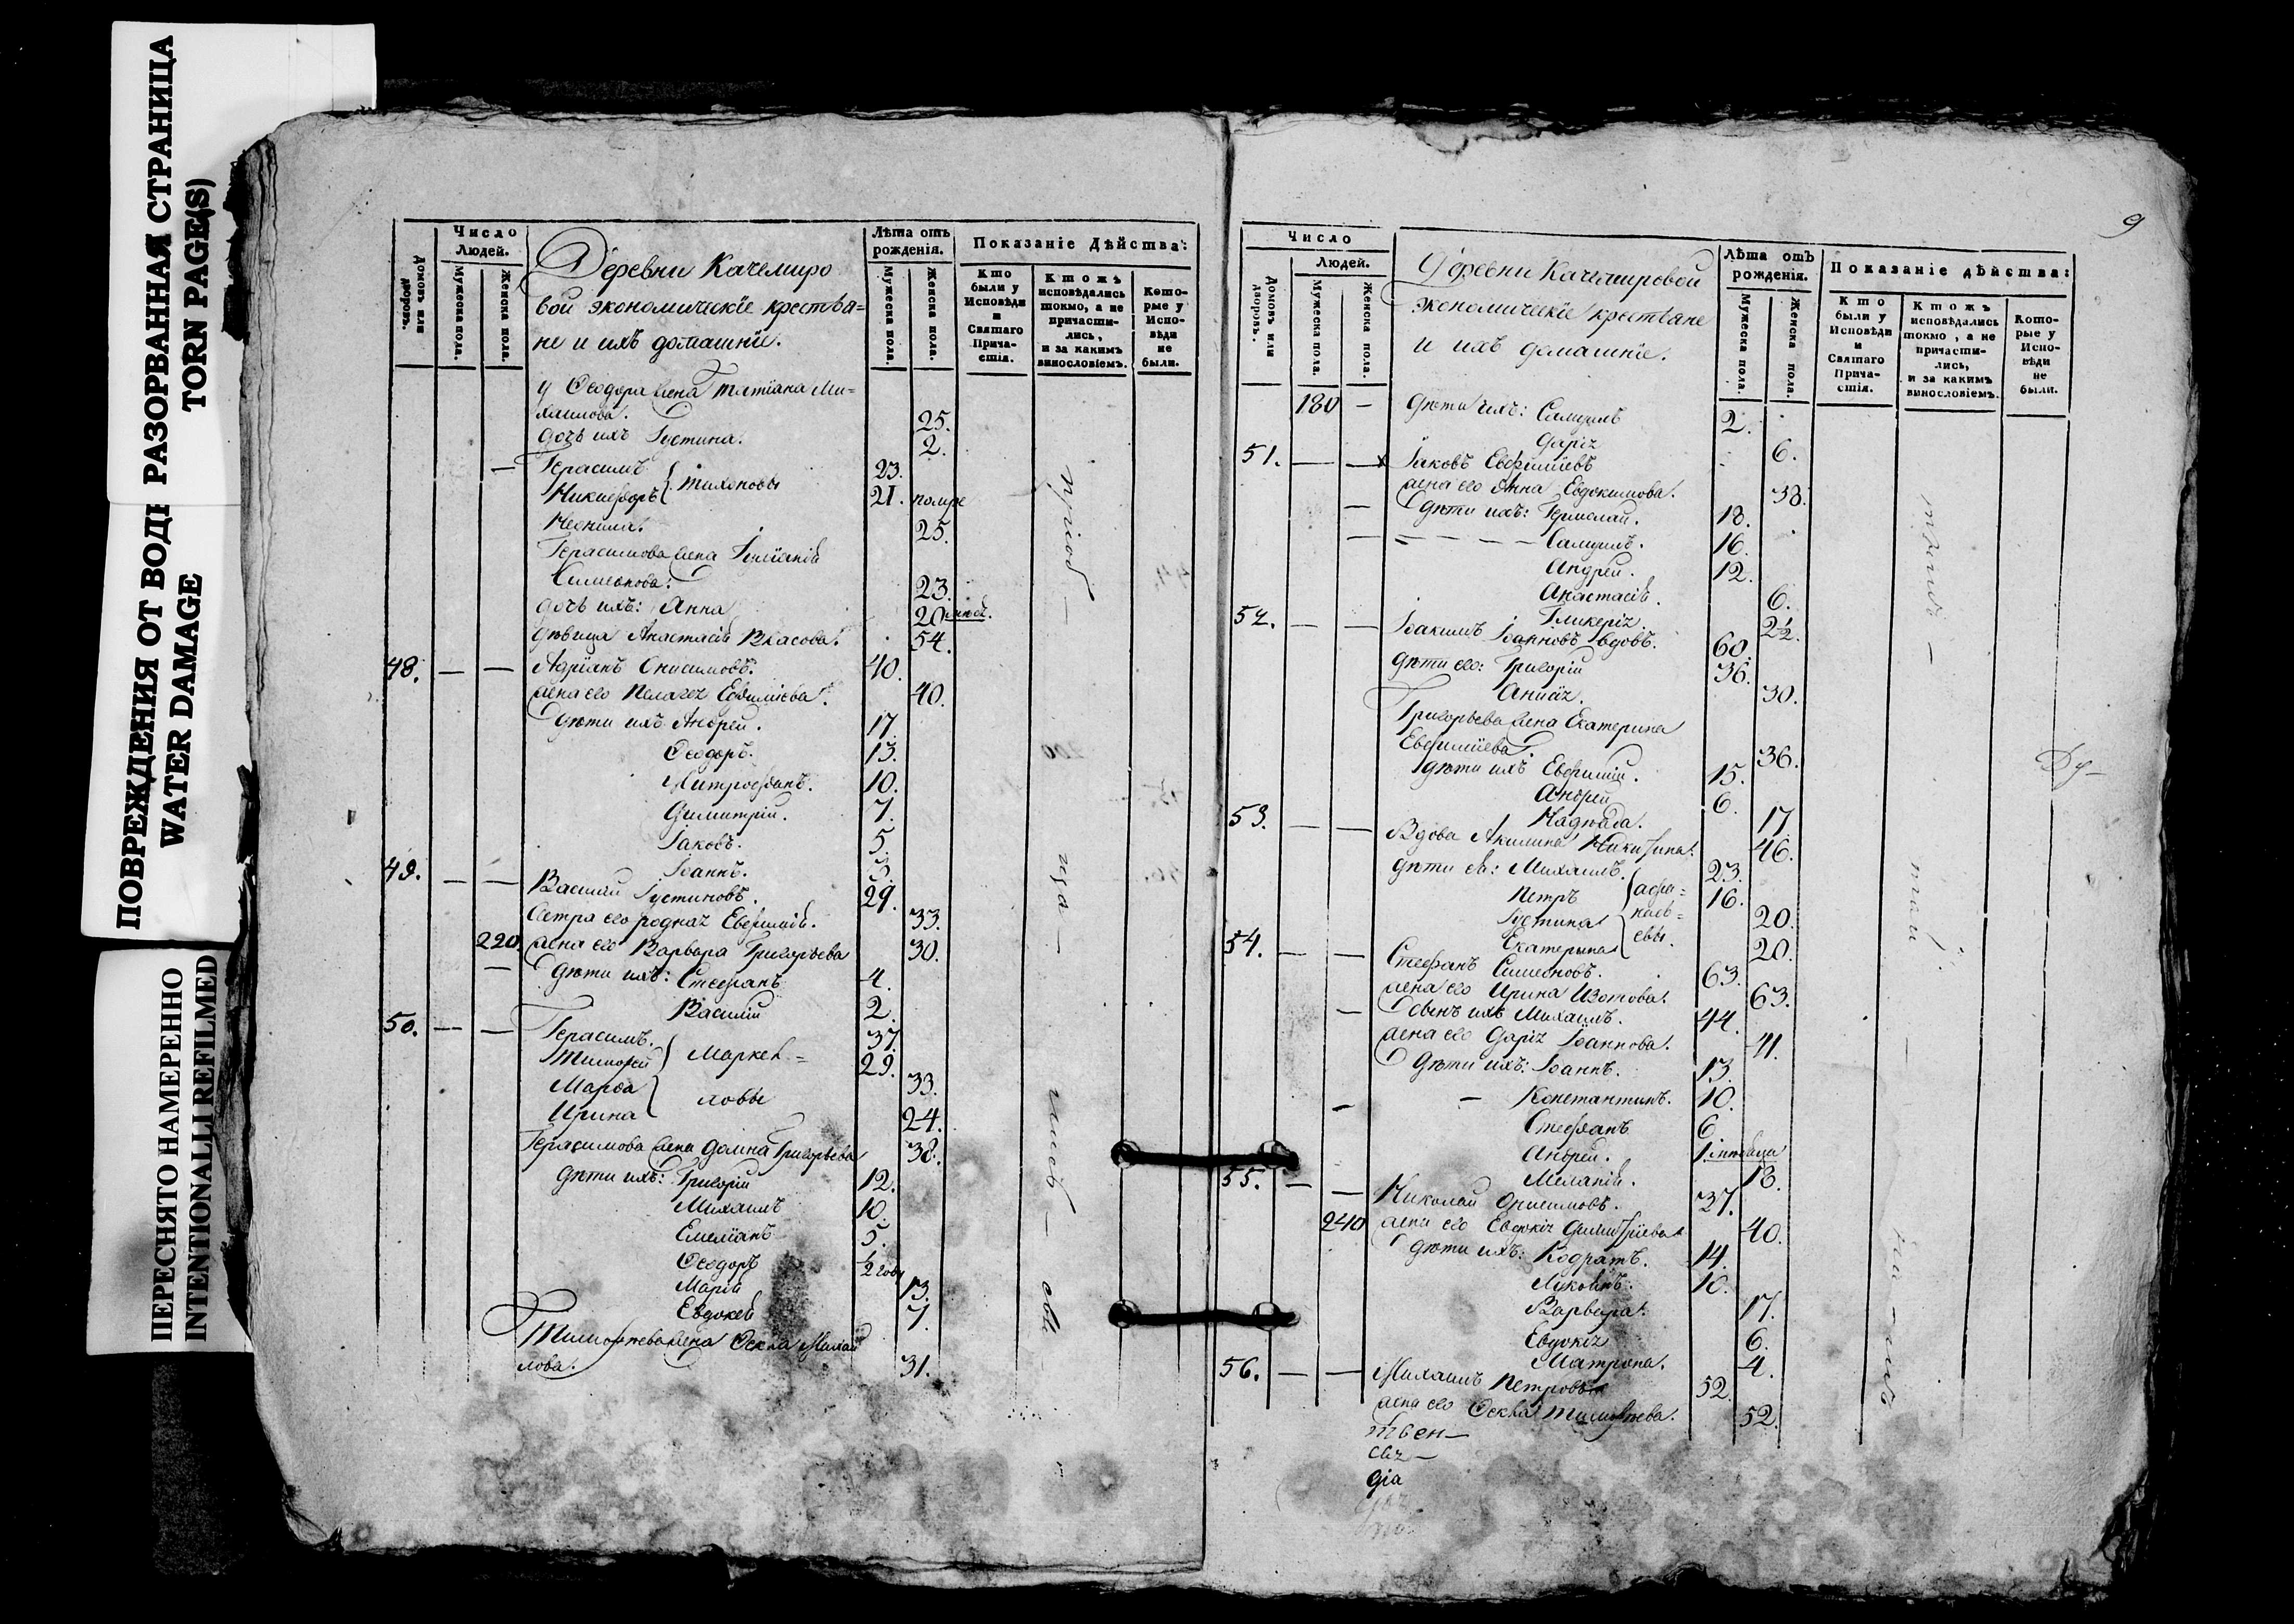 ПОВРЕЖДЕНИЯ ОТ ВОДЫ
WATER DAMAGE
РАЗОРВАННАЯ СТРАНИЦА
TORN PAGE(S)
ПЕРЕСНЯТО НАМЕРЕННО
INTENTIONALLY REFILMED
Число
Людей.
Домовъ или дворовъ.
Мужеска пола.
Женска пола.
Деревни Качемиро
вой экономическїе крестья=
не и ихъ домашнїе.
Лѣта отъ
рожденїя.
Мужеска пола.
Женска пола.
Показанїе Дѣйства:
Кто были у Исповѣди и Святаго Причастїя.
Ктожъ исповѣдались токмо, а не причастились, и за какимъ винословїемъ.
Которые у Исповѣди не были.
у Ѳеодора жена Татїана Ми=
хаилова. 25.
дочь ихъ Іустина. 2.
— Герасимъ 23.
Никифоръ } Тихоновы 21. помре
Неонила. 25.
Герасимова жена
Симеонова. 23.
дочь ихъ: Анна 20
дѣвица Анастасїя Власова. 54.
48. — — Адрїанъ Онисимовъ. 40.
жена его Пелагея Евфимїева. 40.
дѣти ихъ Андрей. 17.
Ѳеодоръ. 13.
Митрофанъ. 10.
Димитрїй. 7.
Іаковъ. 5.
Іоаннъ. 3.
49. — — Василїй Іустиновъ. 29.
сестра его родная Евфимїя. 33.
220 жена его Варвара Григорьева 30.
— дѣти ихъ: Стефанъ 4.
Василїй 2.
50. — — Герасимъ. 37.
Тимоѳей } Маркел= 29.
Марѳа } ловы 33.
Ирина 24.
Герасимова жена Домна Григорьева 38.
дѣти ихъ: Григорїй 12.
Михаилъ 10.
Емелїанъ 5.
Ѳеодоръ ½ года
Марїя 13.
Евдокея 7.
Тимоѳеева жена Ѳекла Михаи
лова. 31.
9
Число
Людей.
Домовъ или дворовъ.
Мужеска пола.
Женска пола.
Деревни Качемировой
экономическїе крестьяне
и ихъ домашнїе.
Лѣта отъ
рожденїя.
Мужеска пола.
Женска пола.
Показанїе дѣйства:
Кто были у Исповѣди и Святаго Причастїя.
Ктожъ исповѣдались токмо, а не причастились, и за какимъ винословїемъ.
Которые у Исповѣди не были.
180 — дѣти ихъ: Самуилъ 2.
Дарїя 6.
51. — — Іаковъ Евфимїевъ
жена его Анна Евдокимова. 38.
— дѣти ихъ: Ермолай. 18.
— Самуилъ. 16.
Андрей. 12.
Анастасїя. 6.
Гликерїя. 2½.
52. — — Іоакимъ Іоанновъ вдовъ. 60.
дѣти его: Григорїй 36.
Анисїя. 30.
Григорьева жена Екатерина
Евфимїева. 36.
дѣти ихъ Евфимїй. 15.
Андрей 6.
Надежда. 17.
53. — — Вдова Акилина Никитина. 46.
дѣти ея: Михаилъ. 23.
Петръ 16.
Іустина 20.
Екатерина 20.
54. — — Стефанъ Симеоновъ. 63.
жена его Ирина Изотова. 63.
— сынъ ихъ Михаилъ. 44.
жена его Дарїя Іоаннова. 41.
дѣти ихъ: Іоаннъ. 13.
— Константинъ. 10.
Стефанъ 6
Андрей. 1
Меланїя. 18.
55. — — Николай Онисимовъ. 37.
240 жена его Евдокїя Димитрїева 40.
дѣти ихъ: Кодратъ. 14.
10.
Варвара. 17.
Евдокїя 6.
Матрона. 4.
56. — — Михаилъ Петровъ 52.
жена его Ѳекла Тимоѳеева. 52.
твен—
дїа